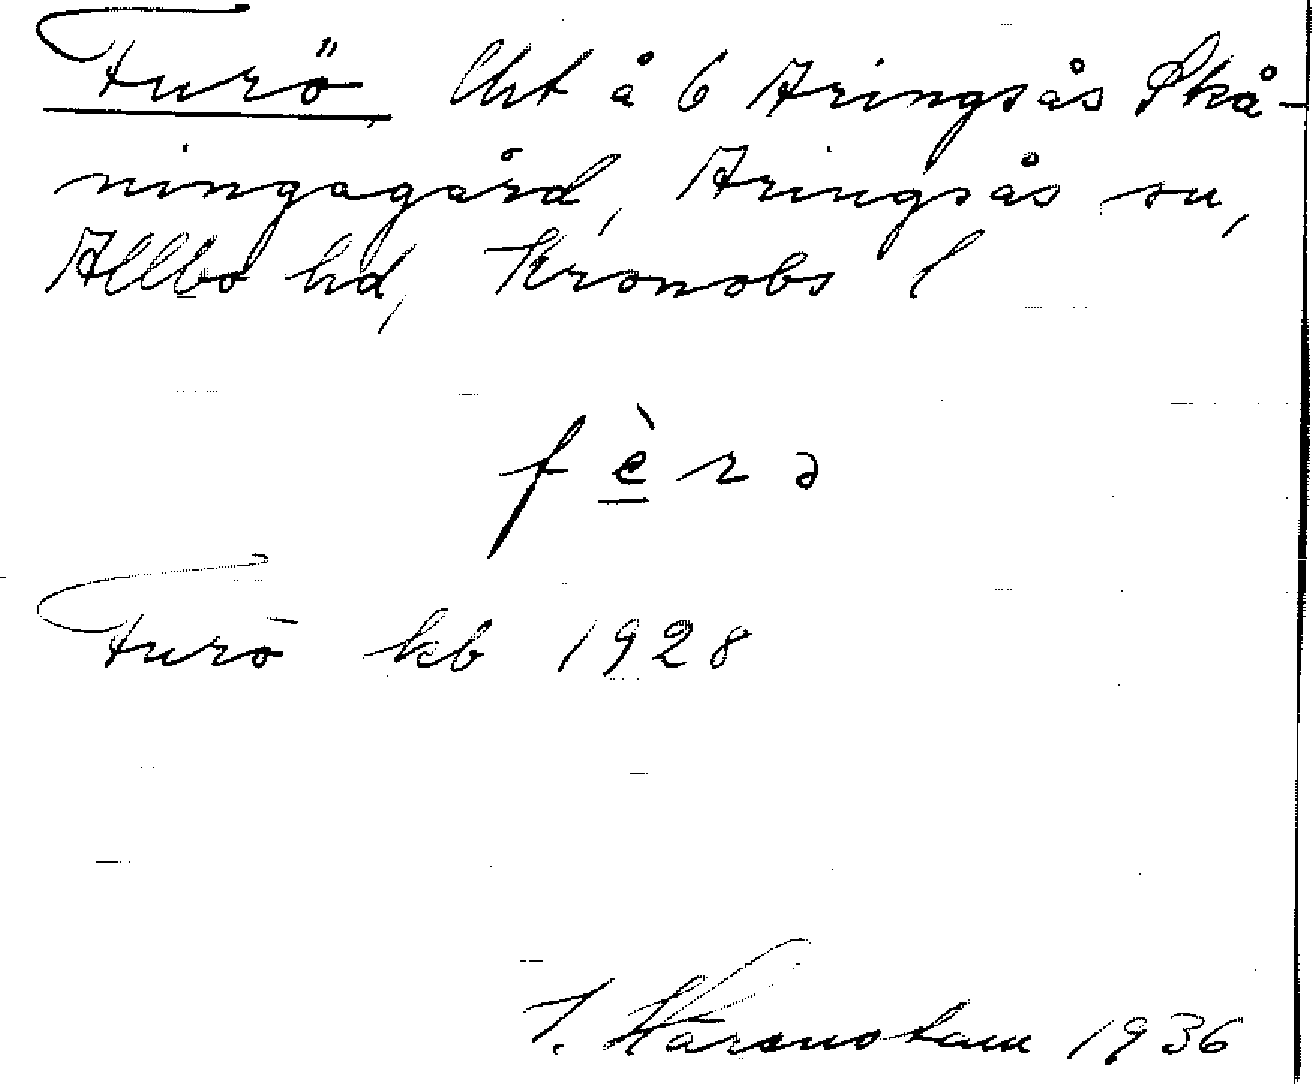 Furö Urt å 6 Aringsås Skå-
ningagård, Aringsås sn,
Allbo hd, Kronobs l
fè̱rə
Furö kb 1928
1936